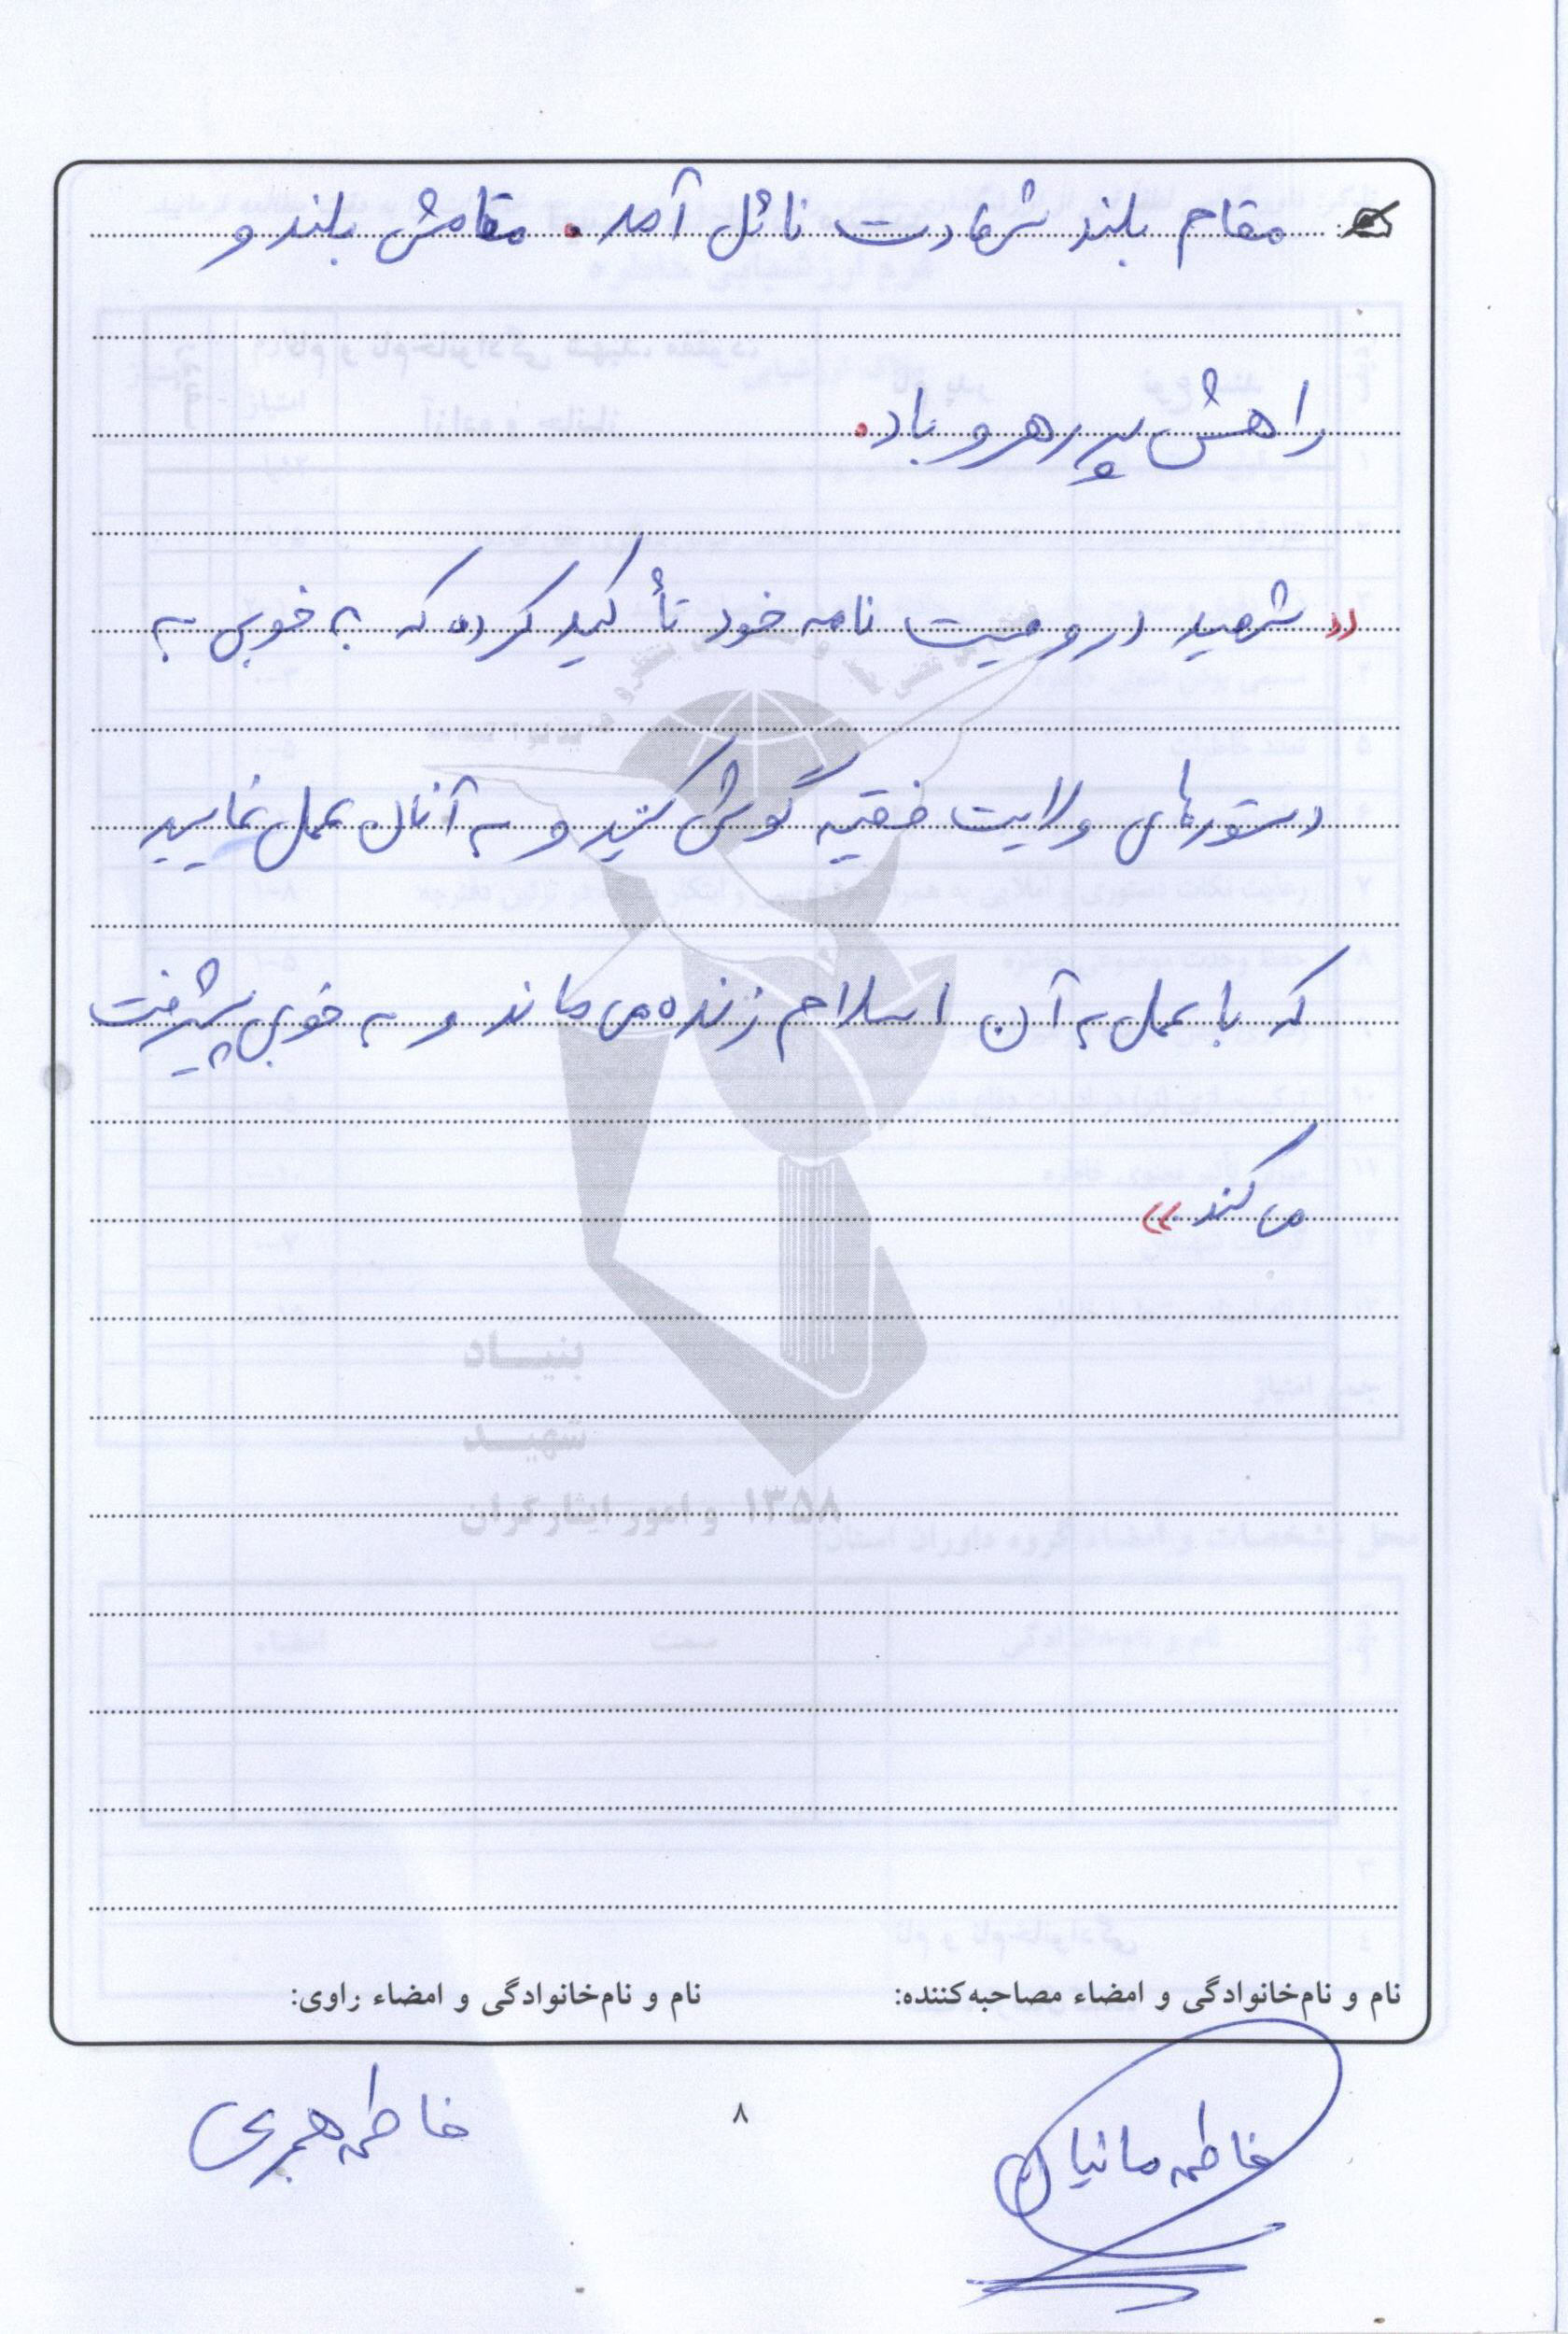 مقام بلند شهادت نائل آمد. مقامش بلند و
راهش پر رهرو باد.
«شهید در وصیت نامه خود تأکید کرده که به خوبی به
دستورهای ولایت فقیه گوش کنید و به آنان عمل نمایید
که با عمل به آن اسلام زنده می ماند و به خوبی پیشرفت
می کند»
بنیاد
شهید
و امور ایثارگران ۱۳۵۸
نام و نام‌خانوادگی و امضاء مصاحبه‌کننده: نام و نام‌خانوادگی و امضاء راوی:
فاطمه مانیان ۸ فاطمه